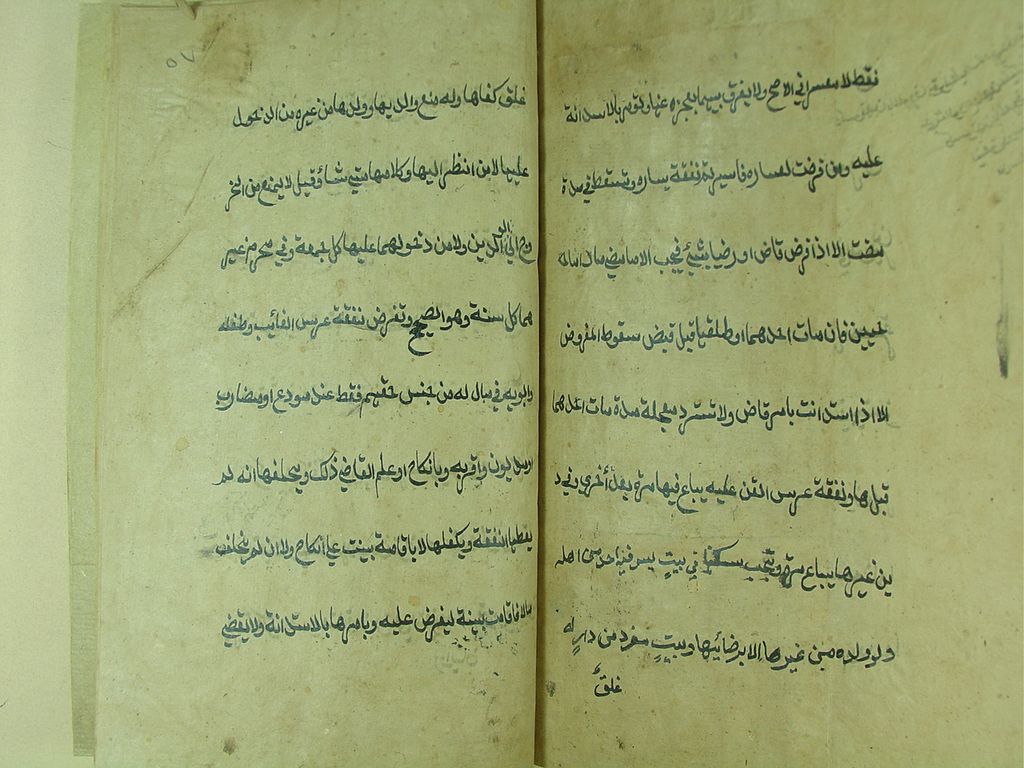 فقط لا معسرا في الاصح ولا يفرق بينهما بعجزه عنها وتؤمر بالاستدانة
عليه ومن فرضت لعساره فايسر تم نفقة يساره وتسقط في مدة
مضت الا اذا فرض قاض او رضيا بشيئ فيجب لما مضي ما داما
حيين فان مات احدهما او طلقها قبل قبض سقوط المفروض
الا اذا استدانت بامر قاض ولا تسترد معجلة مدة مات احدهما
قبلها ونفقة عرس القن عليه يباع فيها مرة بعد أخري وفي د
ين غيرها يباع مرة وتجب سكنها في بيت ليس فيه احد من اهله
ولو ولده من غيرها الا برضائها وبيت مفرد من دار له
غلق
٥٧
غلق كفاها وله منع والديها وولدها من غيره من الدخول
عليها لا من النظر اليها وكلامها متي شاؤ قيل لا يمنع من الخر
وج الي الوالدين ولا من دخولهما عليها كل جمعة وفي محرم غير
هما كل سنة وهو الصحيح وتفرض نفقة عرس الغائب وطفله
وابويه في مال له من جنس حقهم فقط عند مودع او مضارب
او مديون واقر به وبالنكاح او علم القاضي ذلك ويحلفها انه لم
يعطها النفقة ويكفلها لا باقامة بينت علي النكاح ولا ان لم يخلف
مالا فاقامت بينة ليفرض عليه ويامرها بالاستدانة ولا يقضي